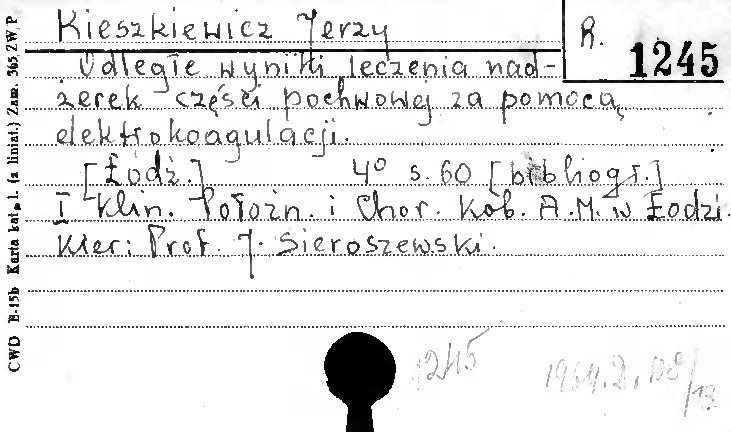 Kieszkiewicz Jerzy
R. 1245
Odległe wyniki leczenia nad-
żerek części pochwowej za pomocą
elektrokoagulacji.
[Łódź.] 4° s. 60 [bibliogr.]
I Klin. Położn. i Chor. Kob. A.M. w Łodzi.
Kier: Prof. J. Sieroszewski.
1245
CWD B-15b Karta kat. l. (z liniat.) Zam. 365 ZW P